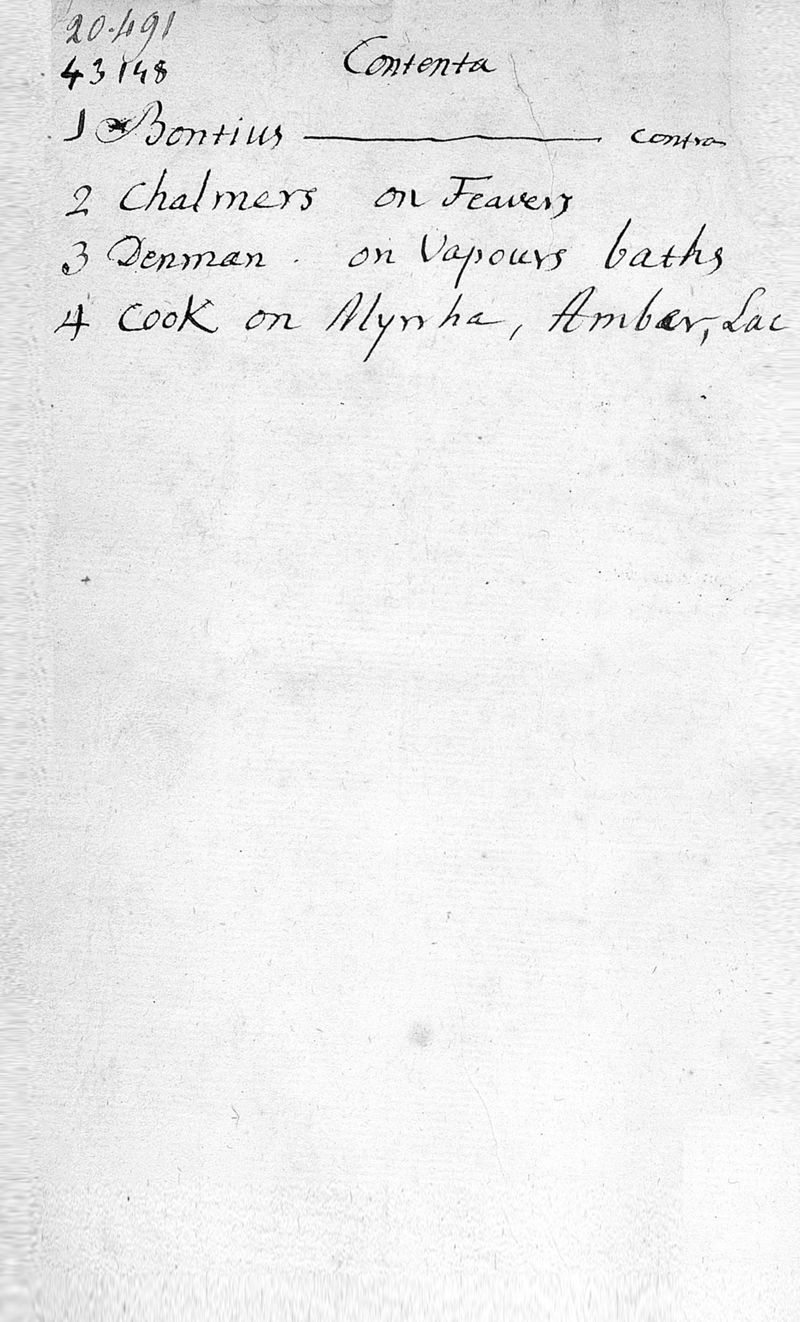 20.491
43148
Contenta
1 Bontius — contra
2 Chalmers on Feavers
3 Denman . on Vapours baths
4 Cook on Myrrha, Amber, Lac